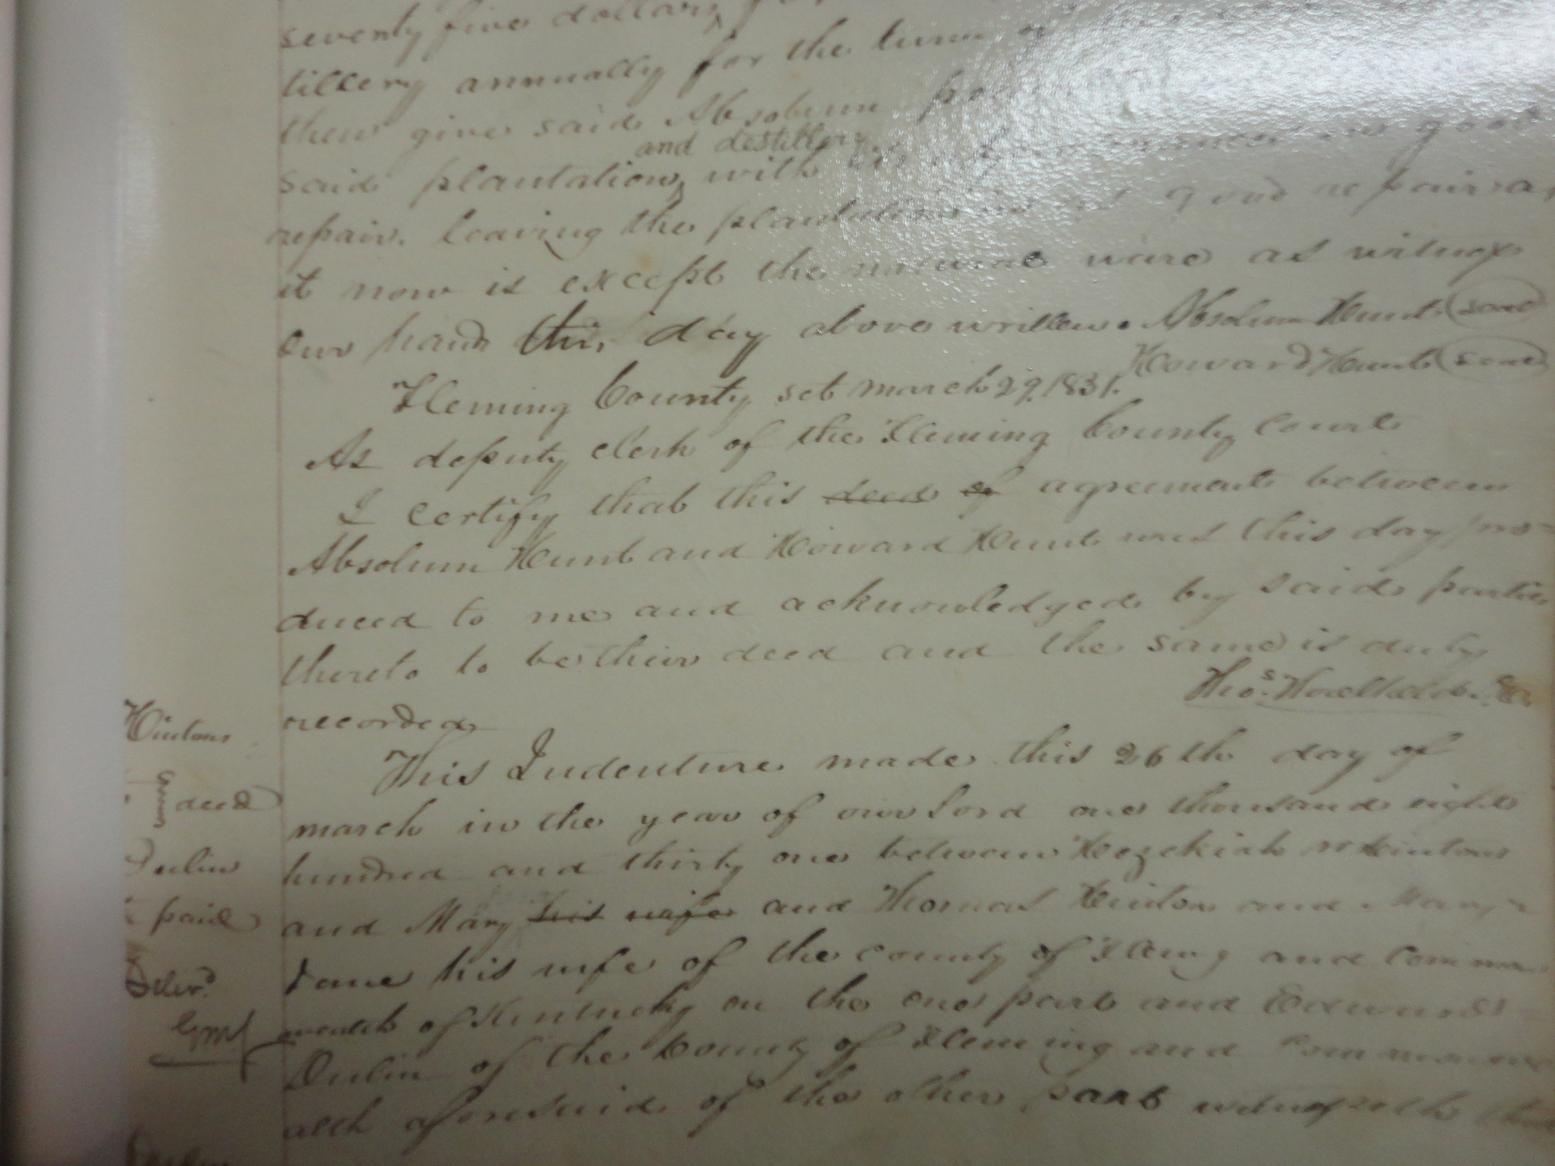 seventy five dollars
tillery annually for the turm of
then give said Absolum
and destillery
said plantation, with good
repair. leaving the plantation good repair as
it now is except the natural ware as witness
our hands this, day above written. Absolum Hunt (seal)
Howard Hunt (seal)
Fleming County set march 29, 1831.
As deputy clerk of the Fleming County Court
I certify that this deed of agreement between
Absolum Hunt and Howard Hunt was this day pro=
duced to me and acknowledged by said parties
thereto to be their deed and the same is duly
recorded
Thos.
This Indenture made this 26th day of
march in the year of our lord one thousand eight
hundred and thirty one between Hezekiah Hinton
and Mary his wife and Thomas Hinton and Mary
Jane his wife of the county of Fleming and Common
wealth of Kentucky on the one part and Edward
Dulin of the County of Fleming and Commonwe
alth aforesaid of the other part witnesseth that
Hintons
deed
Dulin
paid
Delivd.